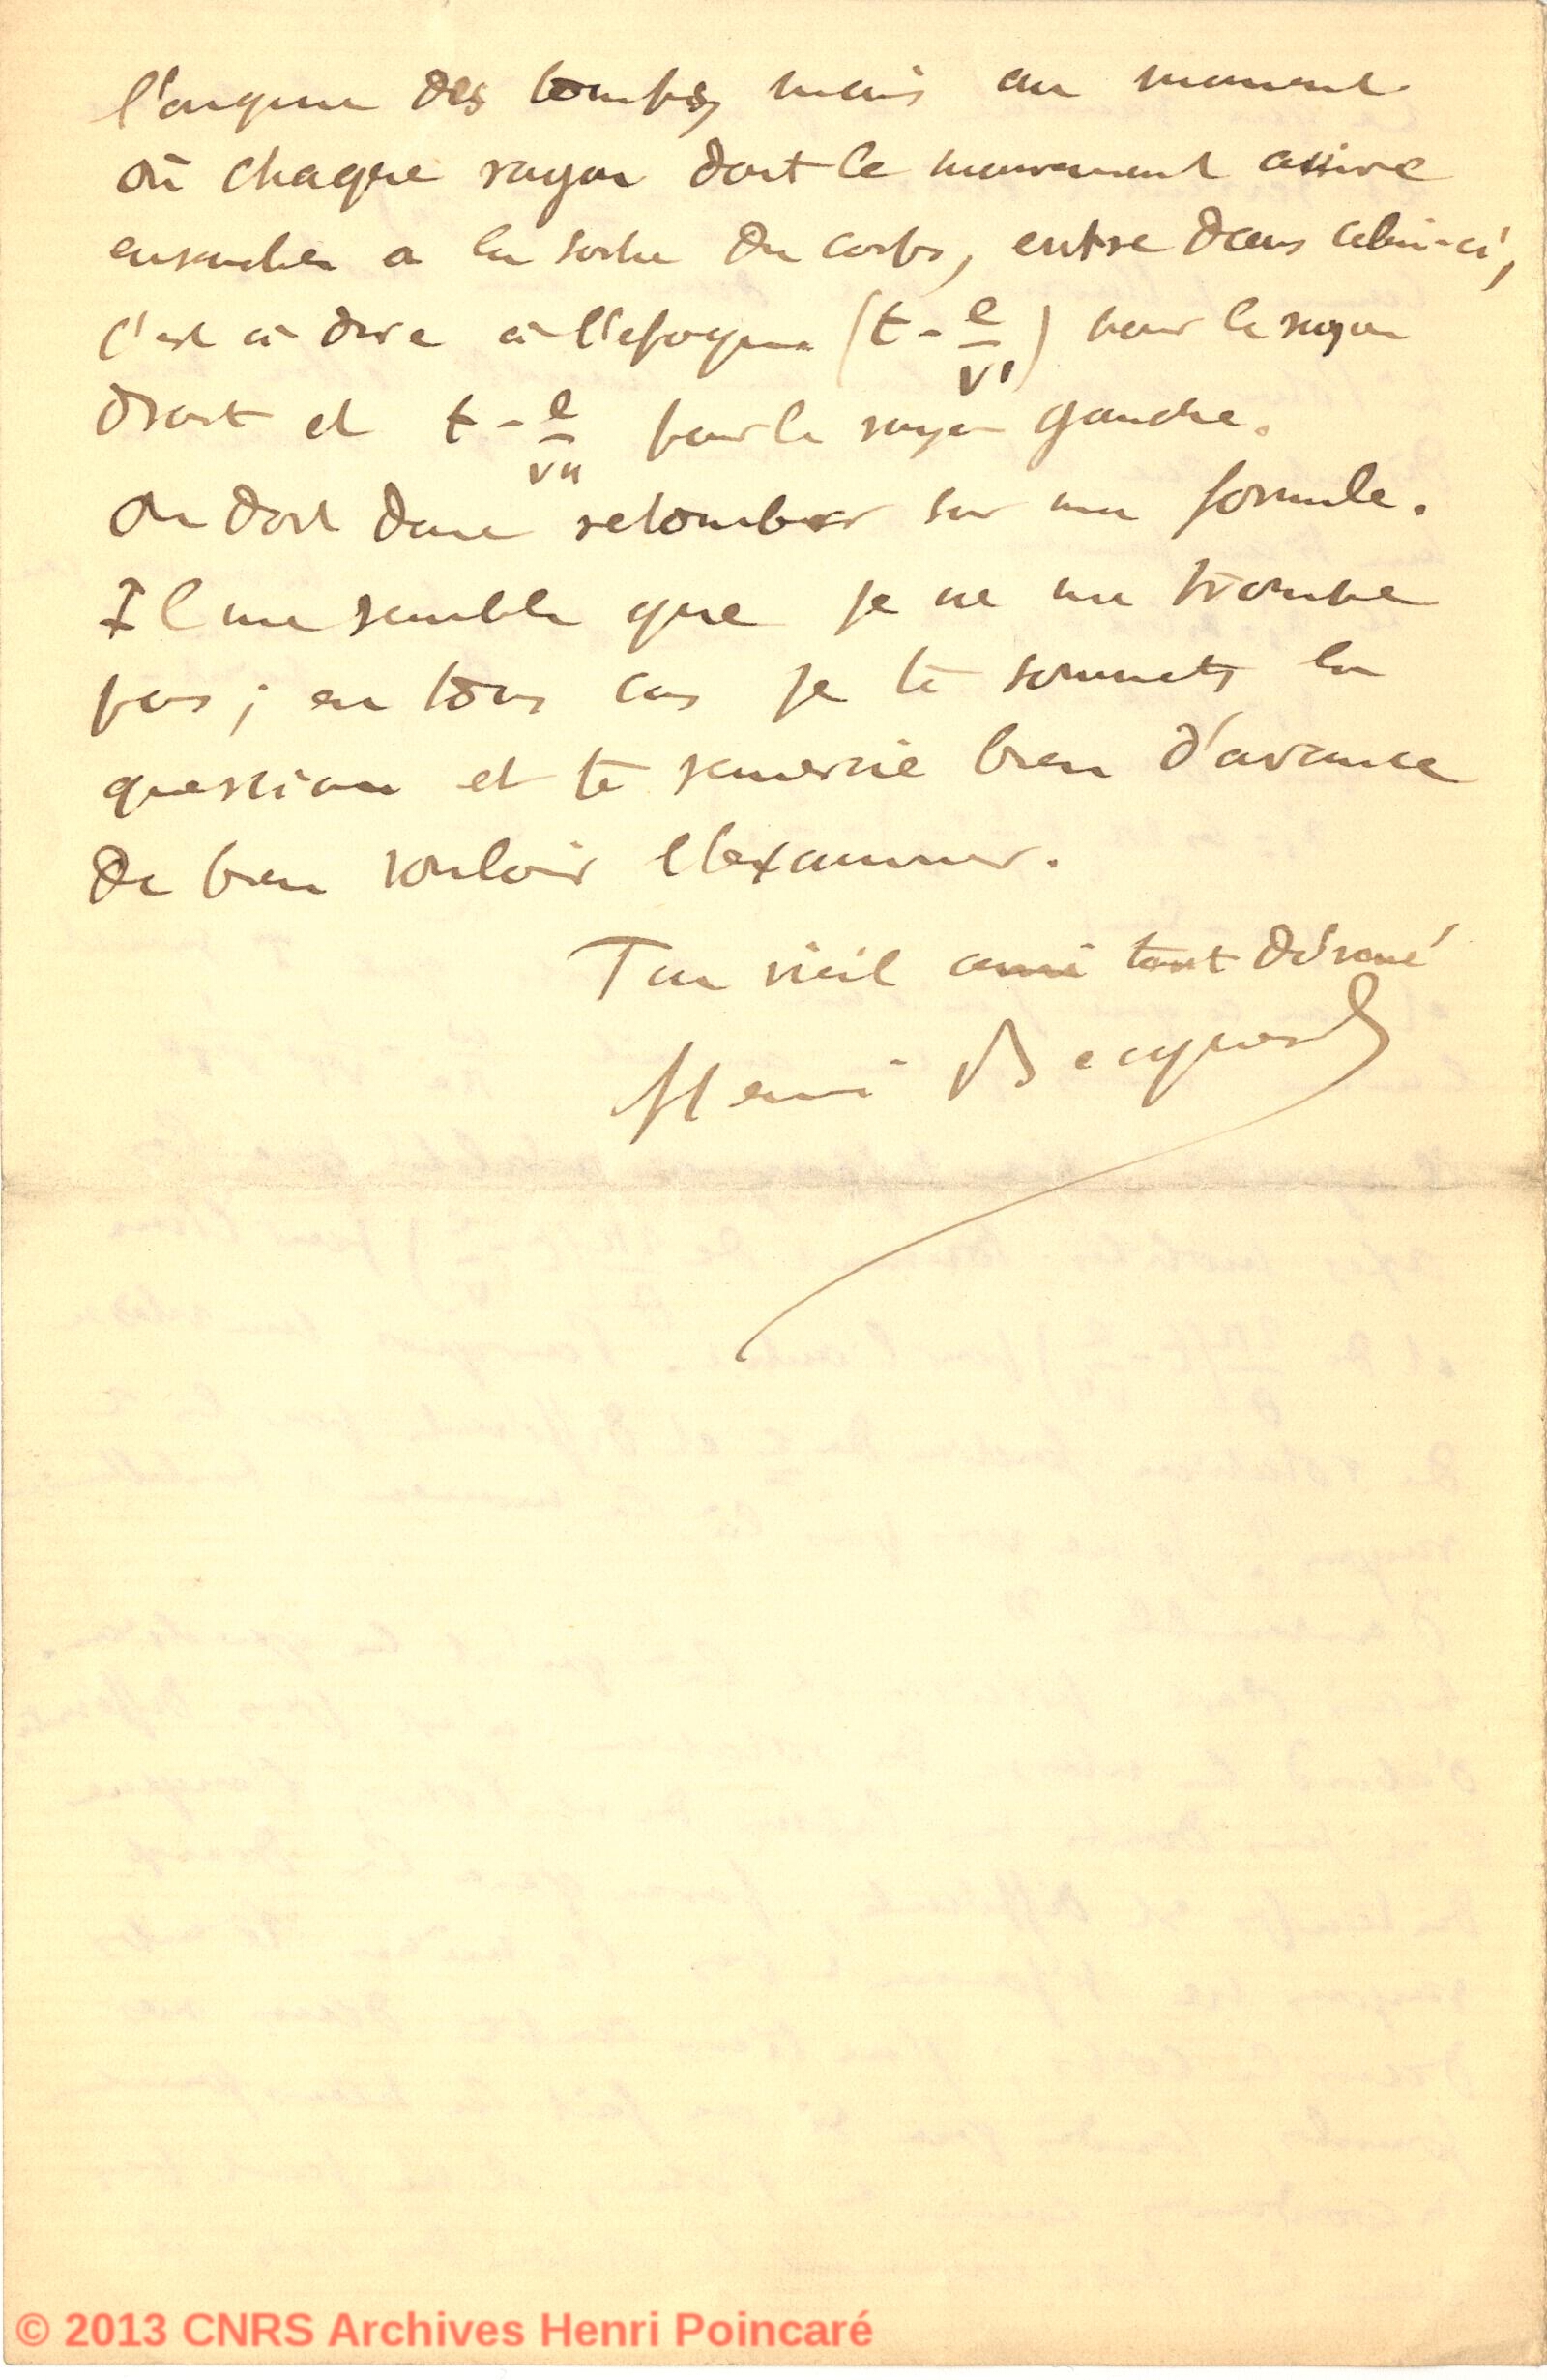 l'origine des temps, mais au moment
où chaque rayon dont le mouvement arrive
ensemble a la sortie du corps, entre dans celui-ci,
c'est à dire à l'époque (t - e/v') pour le rayon
droit et t - e/v'' pour le rayon gauche.
On doit donc retomber sur ma formule.
Il me semble que je ne me trompe
pas ; en tous cas je te soumets la
question et te remercie bien d'avance
de bien vouloir l'examiner.
Ton vieil ami tout dévoué
Henri Becquerel
© 2013 CNRS Archives Henri Poincaré